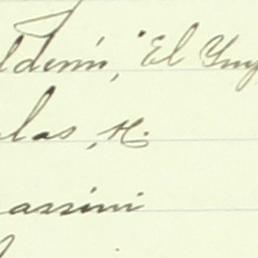 lderín, "El Ymp
las, H.
assini